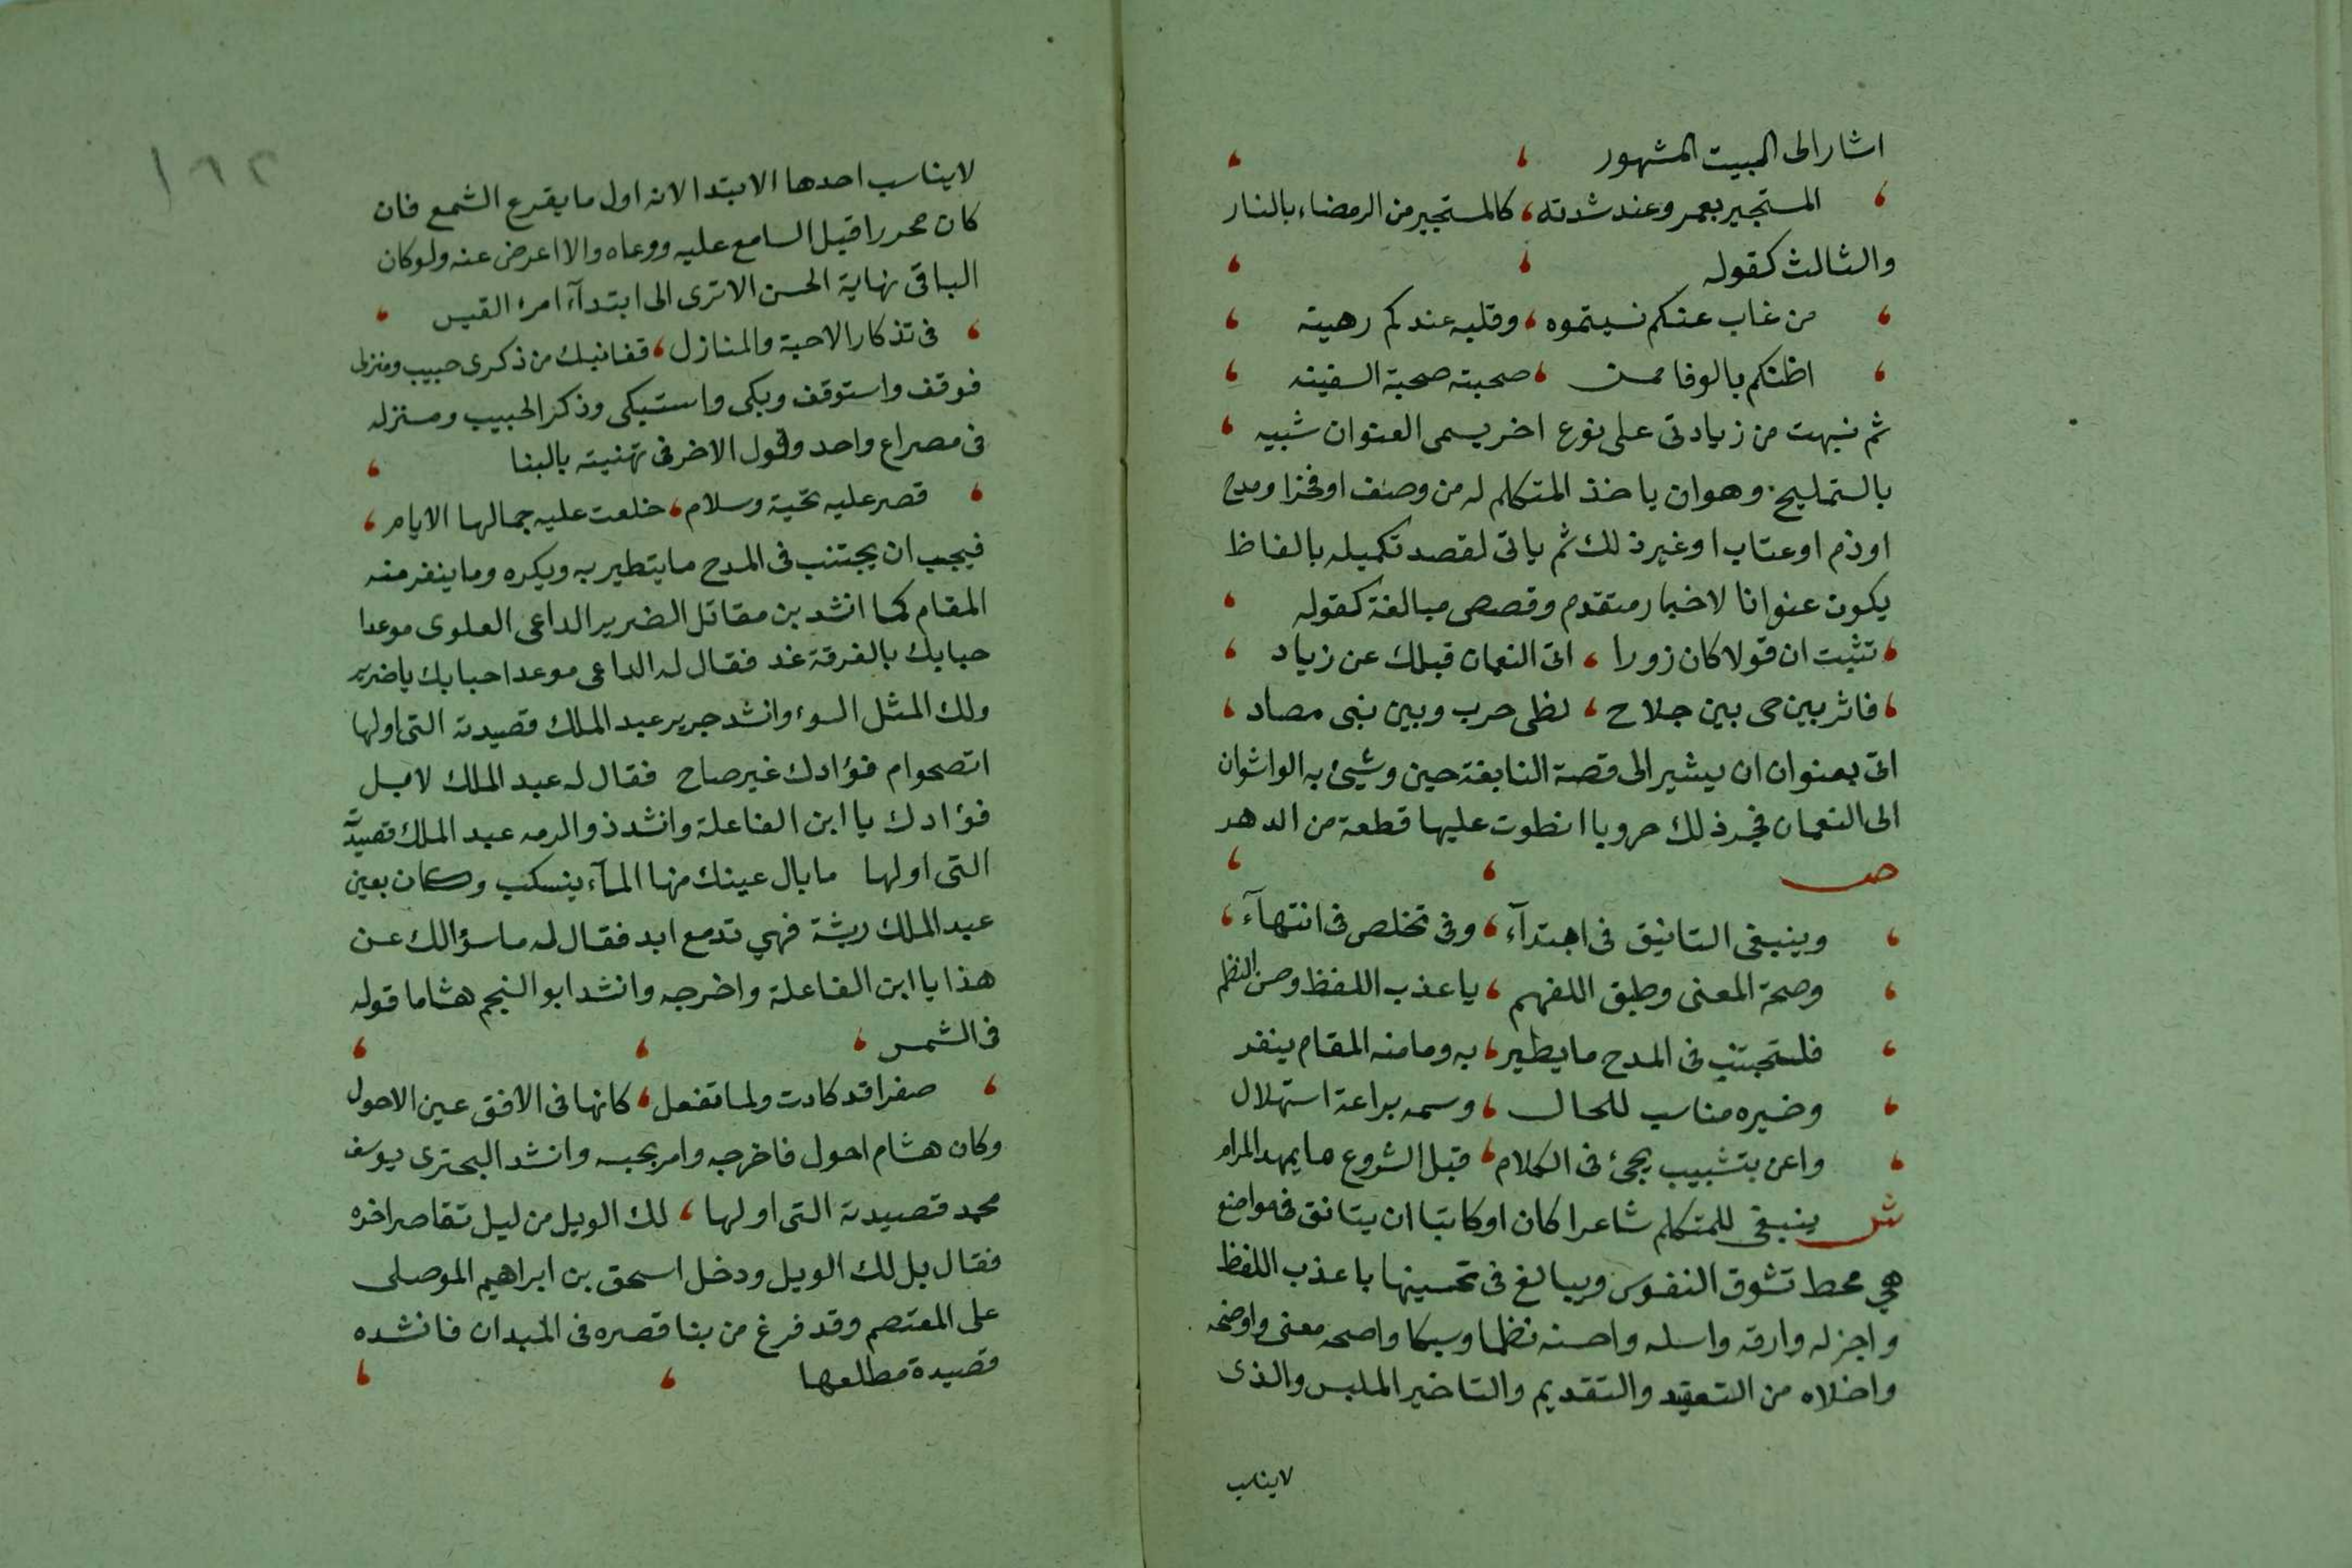 اشار الى البيت المشهور
المستجير بعمرو عند شدته ، كالمستجير من الرمضاء بالنار
والثالث كقوله
من غاب عنكم نسيتموه ، وقلبه عندكم رهينه
اظنكم بالوفا ممن ، صحبته صحبة السفينه
ثم نبهت من زيادتى على نوع اخر يسمى العنوان شبيه
بالتمليح وهو ان ياخذ المتكلم له من وصف او فخر او مدح
او ذم او عتاب او غير ذلك ثم ياتى لقصد تكميله بالفاظ
يكون عنوانا لاخبار متقدم وقصص مبالغة كقوله
تثبت ان قولا كان زورا ، اتى النعمان قبلك عن زياد
فاثر بين حى بين جلاح ، لظى حرب وبين بنى مصاد
اتى بعنوان ان يشير الى قصة النابغة حين وشئ به الواشوان
الى النعمان فجر ذلك حروبا انطوت عليها قطعة من الدهر
ص
وينبغى التانيق فى ابتدآء ، وفى تخلص فى انتهآء
وصحة المعنى وطبق اللفهم ، يا عذب اللفظ وحسن النظم
فلتجتنب فى المدح ما يطير ، به وما منه المقام ينفر
وخيره مناسب للحال ، وسمه براعة استهلال
واعن بتشبيب يجئ فى الكلام ، قبل الشروع ما يمهد المرام
ش ينبغى للمتكلم شاعرا كان او كاتبا ان يتانق فى مواضع
هي محط تشوق النفوس ويبالغ فى تحسينها باعذب اللفظ
واجزله وارقه واسله واحسنه نظما وسبكا واصحه معنى واوضحه
واخلاه من التعقيد والتقديم والتاخير الملبس والذى
لايناسب
١٦٢
لايناسب احدها الابتدا لانه اول ما يقرع الشمع فان
كان محررا قبل السامع عليه ووعاه والا اعرض عنه ولو كان
الباقى نهاية الحسن الاترى الى ابتدآء امرئ القيس
فى تذكار الاحبة والمنازل ، قفا نبك من ذكرى حبيب ومنزل
فوقف واستوقف وبكى واستبكى وذكر الحبيب ومنزله
فى مصراع واحد وقول الاخر فى تهنيته بالبنا
قصر عليه تحية وسلام ، خلعت عليه جمالها الايام
فيجب ان يجتنب فى المدح ما يتطير به ويكره وما ينفر منه
المقام كما انشد بن مقاتل الضرير الداعى العلوى موعدا
حبابك بالفرقة غد فقال له الداعى موعد احبابك يا ضرير
ولك المثل السوء وانشد جرير عبد الملك قصيدته التى اولها
اتصحو ام فؤادك غير صاح فقال له عبد الملك لا بل
فؤادك يا ابن الفاعلة وانشد ذو الرمه عبد الملك قصيدته
التى اولها ما بال عينك منها المآء ينسكب وكان بعين
عبد الملك ريشة فهي تدمع ابد فقال له ما سؤالك عن
هذا يا ابن الفاعلة واخرجه وانشد ابو النجم هشاما قوله
فى الشمس
صفرا قد كادت ولما تفعل ، كانها فى الافق عين الاحول
وكان هشام احول فاخرجه وامر بحبسه وانشد البحترى يوسف
محمد قصيدته التى اولها ، لك الويل من ليل تقاصر اخره
فقال بل لك الويل ودخل اسحق بن ابراهيم الموصلى
على المعتصم وقد فرغ من بنا قصره فى الميدان فانشده
قصيدة مطلعها